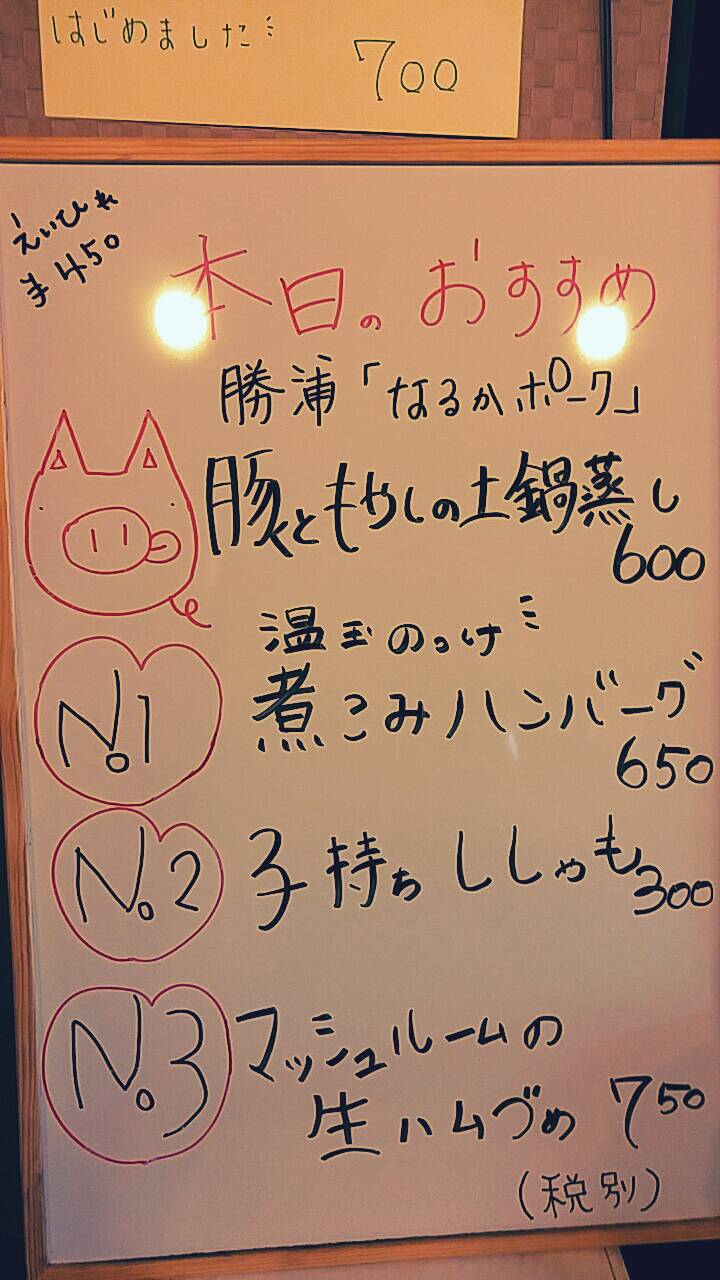 はじめました
700
えいひれ
¥450
本日のおすすめ
勝浦「なるかポーク」
豚ともやしの土鍋蒸し
600
温玉のっけ
No.1 煮こみハンバーグ
650
No.2 子持ちししゃも 300
No.3 マッシュルームの
生ハムづめ 750
(税別)